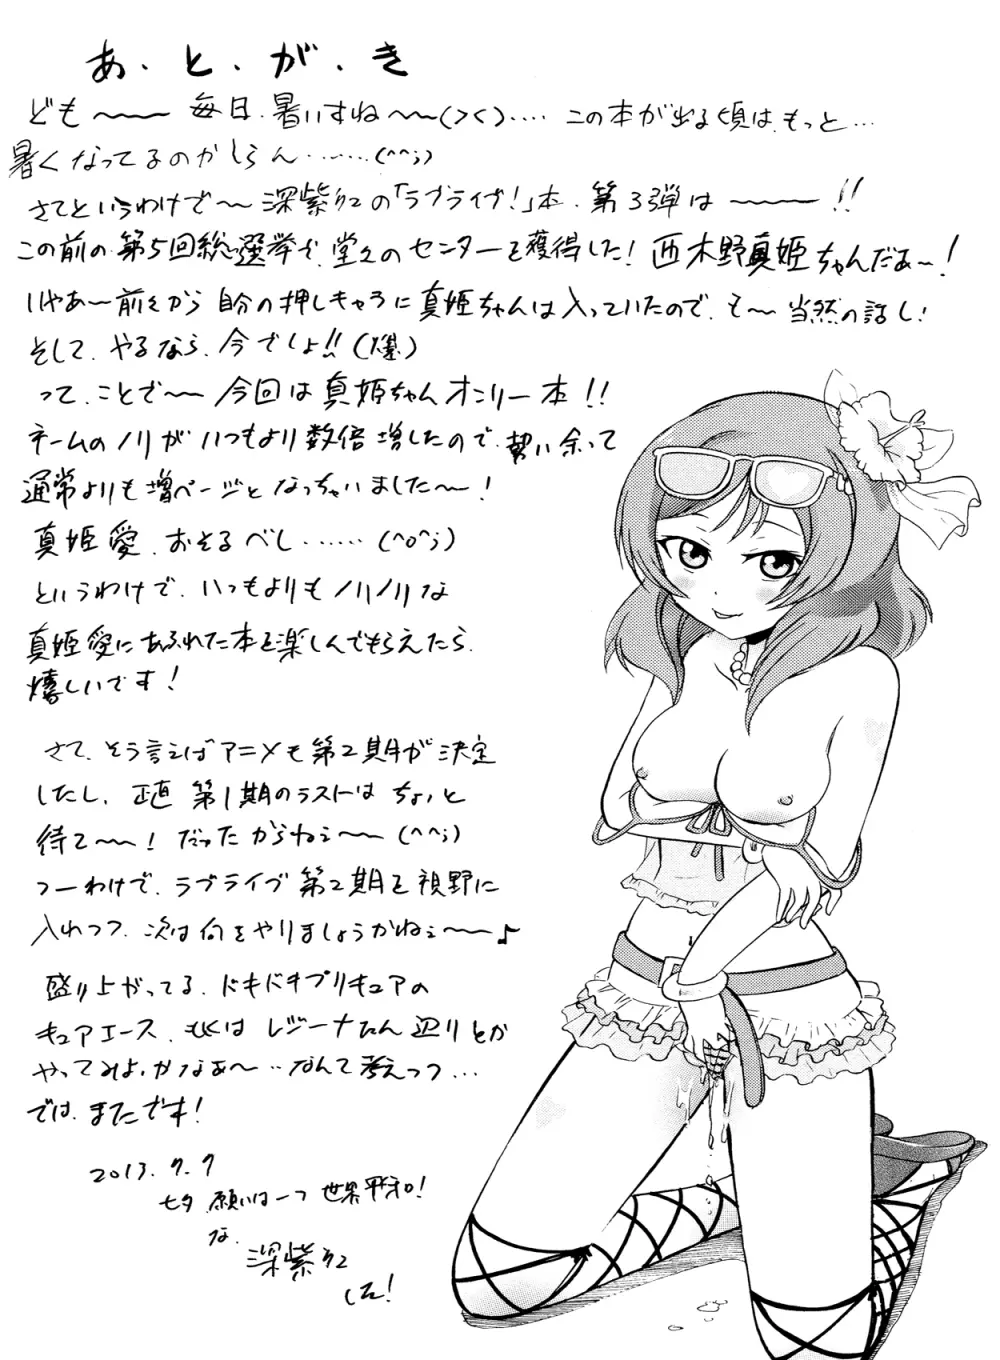 あ・と・が・き
ども～～～ 毎日、暑いすね～～(＞＜)‥‥ この本が出る頃は、もっと…
暑くなってるのかしらん……‥(^^;)
さてというわけで～深紫紅の「ラブライブ！」本、第3弾は～～～!!
この前の第5回総選挙で、堂々のセンターを獲得した！西木野真姫ちゃんだぁ～！
いやあ～前々から自分の押しキャラに真姫ちゃんは入っていたので、も～当然の話し！
そして、やるなら、今でしょ!!(爆)
って、ことで～今回は真姫ちゃんオンリー本!!
ネームのノリがいつもより数倍増したので、勢い余って
通常よりも増ページとなっちゃいました～！
真姫愛、おそるべし……(^o^;)
というわけで、いつもよりもノリノリな
真姫愛にあふれた本を楽しんでもらえたら
嬉しいです！
さて、そう言えばアニメも第2期が決定
したし、正直第1期のラストはちょいと
待て～～！だったからねぇ～～(^^;)
つーわけで、ラブライブ第2期を視野に
入れつつ、次は何をやりましょうかねぇ～～♪
盛り上がってる、ドキドキプリキュアの
キュアエース、もしくはレジーナたん辺りとか
やってみよっかなぁ～‥なんて考えつつ…
では、またです！
2013.7.7
七夕 願いは一つ 世界平和！
な、
深紫紅
した！